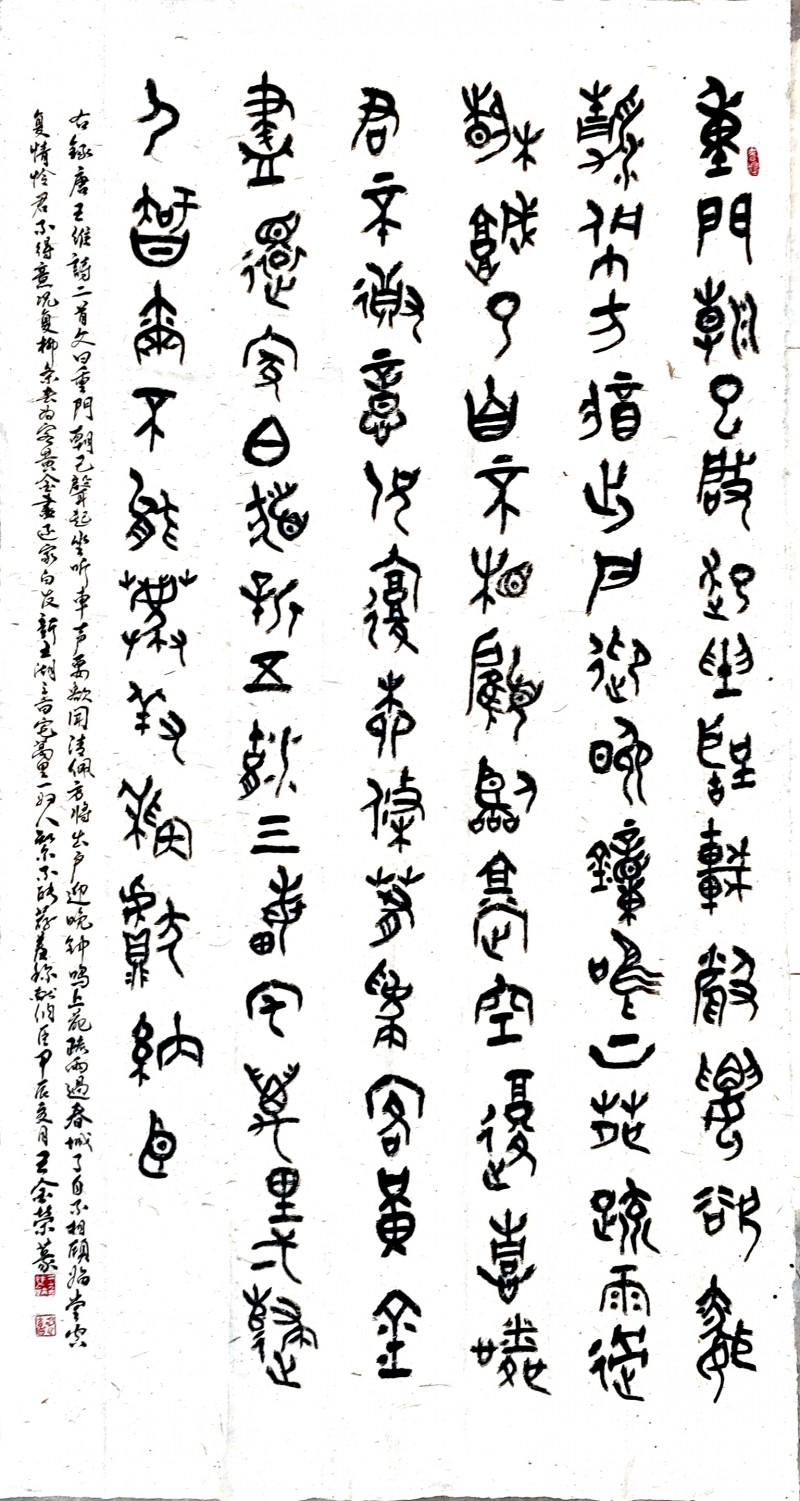 重門朝已啟起坐聽車聲要欲聞
清佩方將出戶迎晚鐘鳴上苑疏雨過
春城了自不相顧臨堂空復情憐
君不得意況復柳條春為客黃金
盡還家白髮新五湖三畝宅萬里一歸
人知爾不能薦羞稱獻納臣
右錄唐王維詩二首文曰重門朝已啟起坐听車声要欲聞清佩方將出户迎晚钟鸣上苑疏雨過春城了自不相顾临堂空
复情怜君不得意况复柳条春为客黄金盡还家白发新五湖三亩宅萬里一归人知尔不能荐羞称献纳臣甲辰亥月王金榮篆